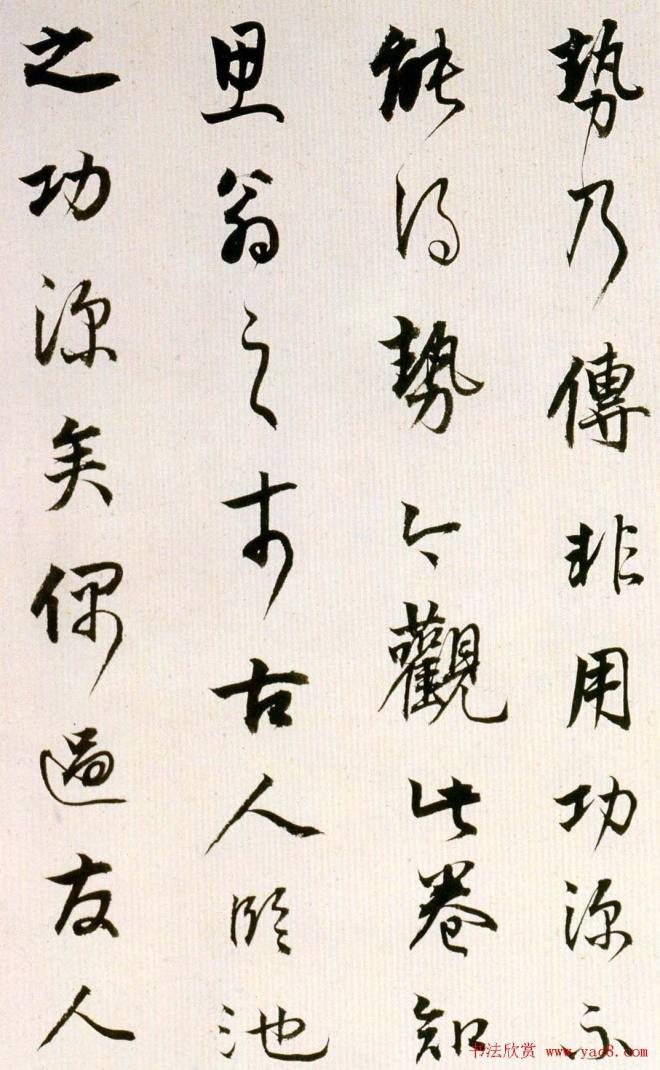 勢乃傳非用功深不
能得勢今觀此卷知
思翁之於古人臨池
之功深矣偶過友人
书法欣赏 www.yac8.com